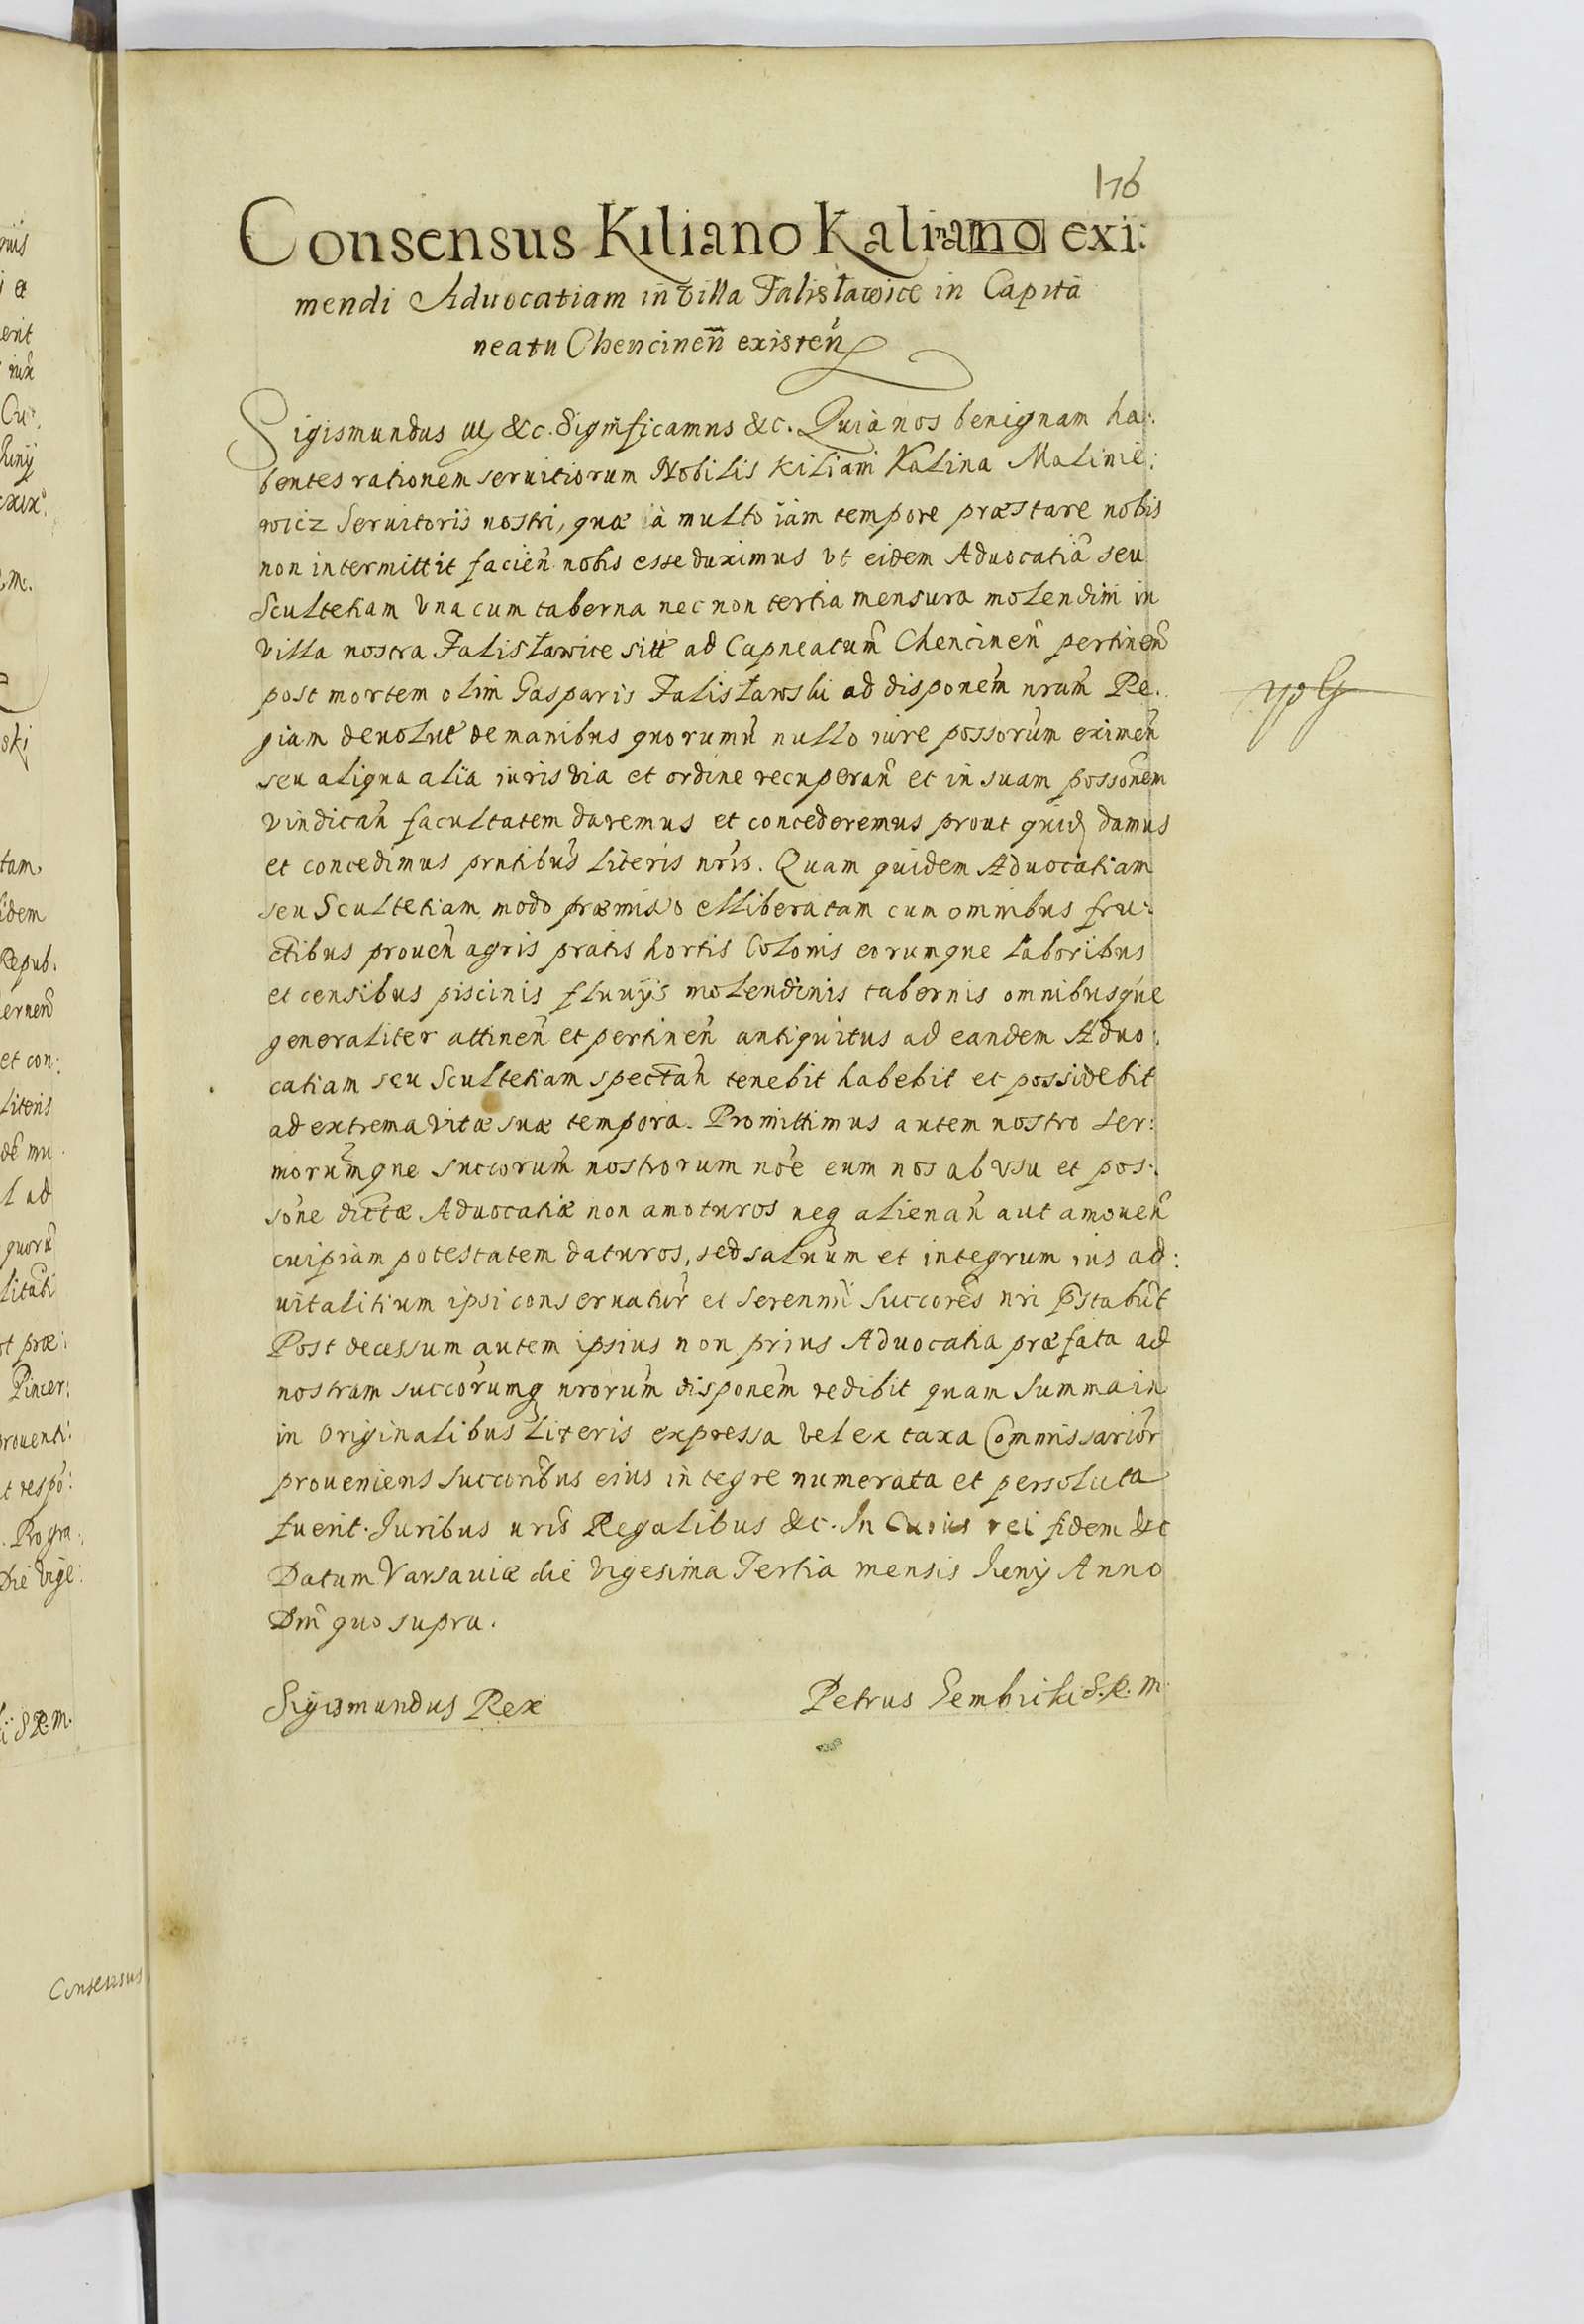 176
Consensus Kiliano Kalina exi:
mendi Aduocatiam in Villa Falisławice in Capita
neatu Chencineñ existeñ
Sigismundus &c. Significamus &c. Quia nos benignam ha:
bentes rationem seruitiorum Nobilis Kiliani Kalina Malinie:
wicz Seruitoris nostri, quæ à multo iam tempore præstare nobis
non intermittit facieñ nobis esse duximus vt eidem Aduocatiã seu
Scultetiam vna cum taberna nec non tertia mensura molendini in
villa nostra Falisławice sitt̃ ad Capneatum̃ Chencineñ pertineñ
post mortem olim Gasparis Falisławski ad disponem̃ nram̃ Re:
giam deuolut̃ de manibus quorumũ nullo iure possorum̃ eximeñ
seu aliqua alia iuris via et ordine recuperañ et in suam possonẽm
vindicañ facultatem daremus et concederemus prout quidẽ damus
et concedimus prñtibus literis nrĩs. Quam quidem Aduocatiam
seu Scultetiam modo præmisso elliberatam cum omnibus fru:
ctibus proueñ agris pratis hortis Colonis eorumque laboribus
et censibus piscinis fluuijs molendinis tabernis omnibusque
generaliter attineñ et pertineñ antiquitus ad eandem Aduo:
catiam seu Scultetiam spectañ tenebit habebit et possidebit
ad extrema vitæ suæ tempora. Promittimus autem nostro Ser:
morum̃que succorum̃ nostrorum noẽ eum nos ab vsu et pos:
soñe dictæ Aduocatiæ non amoturos neq alienañ aut amoueñ
cuipiam potestatem daturos, sed saluum et integrum ius ad:
uitalitium ipsi conseruatur̃ et Serenmĩ Succorẽs nri p̃stabũt
Post decessum autem ipsius non prius Aduocatia præfata ad
nostram succorũmq nrorum̃ disponem̃ redibit quam summa in
in Originalibus literis expressa vel ex taxa Commissarior̃
proueniens succoribũs eius integre numerata et persoluta
fuerit. Iuribus nrĩs Regalibus &c. In Cuius rei fidem &c
Datum Varsauiæ die Vigesima Tertia mensis Iunij Anno
Dnĩ quo supra.
Sigismundus Rex
Petrus Gembicki S. R. M.
Consensus